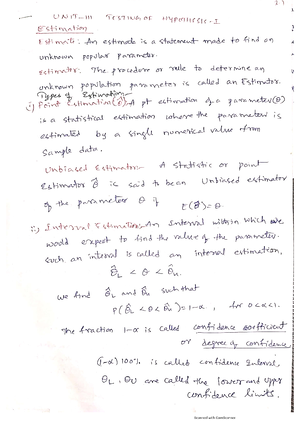 UNIT-III TESTING OF HYPOTHESIS-I
Estimation
Estimate: An estimate is a statement made to find an
unknown popular parameter.
Estimator: The procedure or rule to determine an
unknown population parameter is called an Estimator.
Types of Estimation:-
i) Point Estimation(θ̂): A pt estimation of a parameter(θ)
is a statistical estimation where the parameter is
estimated by a single numerical value from
sample data.
Unbiased Estimator:- A statistic or point
Estimator θ̂ is said to been Unbiased estimator
of the parameter θ if E(θ̂)=θ.
ii) Interval Estimation:- An Interval within which we
would expect to find the value of the parameter.
such an interval is called an interval estimation.
θ̂L < θ < θ̂u.
we find θ̂L and θ̂u such that
P(θ̂L < θ < θ̂u) = 1-α, for 0<α<1.
The fraction 1-α is called confidence coefficient
or degree of confidence
(1-α)100% is called confidence Interval,
θL, θu are called the lower and upper
confidence limits.
Scanned with CamScanner